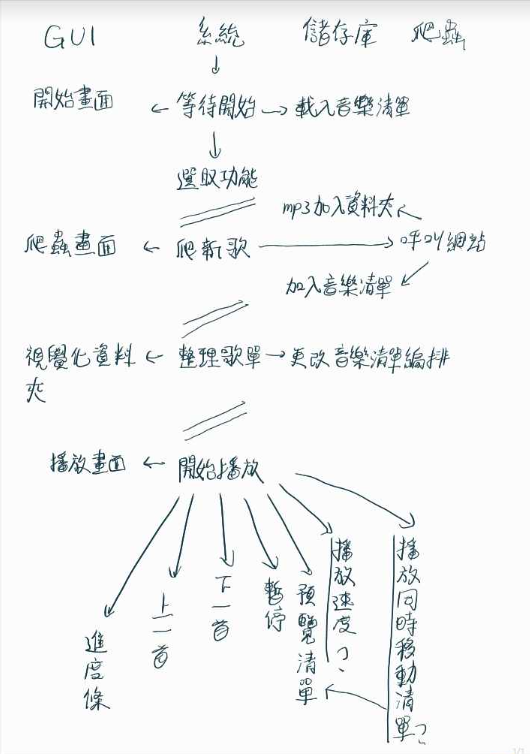 GUI 系統 儲存庫 爬蟲
開始畫面 ← 等待開始 → 載入音樂清單
選取功能
mp3加入資料夾
爬蟲畫面 ← 爬新歌 → 呼叫網站
加入音樂清單
視覺化資料夾 ← 整理歌單 → 更改音樂清單編排
播放畫面 ← 開始播放
進度條
上一首
下一首
暫停
預覽清單
播放速度?
播放同時移動清單?